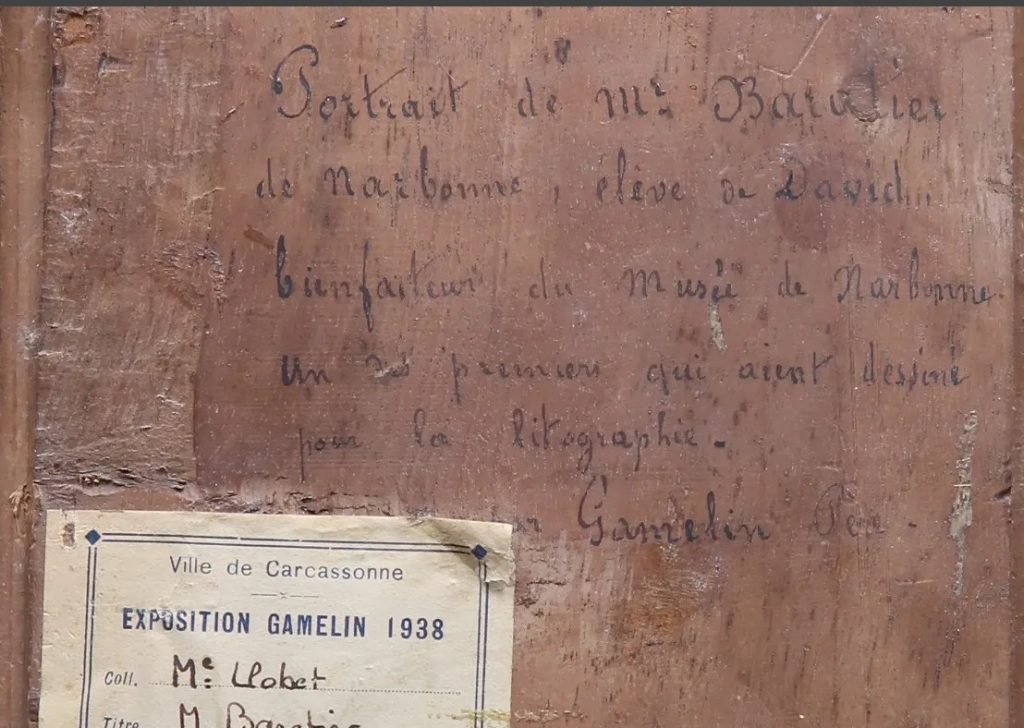 Portrait de Mr Baratier
de Narbonne, élève de David,
bienfaiteur du Musée de Narbonne.
un des premiers qui aient dessiné
pour la litographie.
Gamelin
Ville de Carcassonne
EXPOSITION GAMELIN 1938
Coll. Me Llobet
Titre M. Baratier